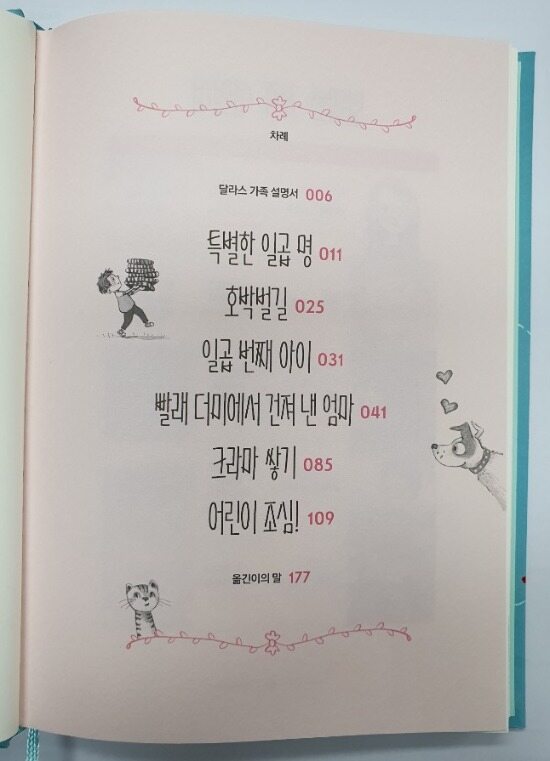 차례
달라스 가족 설명서 006
특별한 일곱 명 011
호박벌길 025
일곱 번째 아이 031
빨래 더미에서 건져 낸 엄마 041
크라마 쌓기 085
어린이 조심! 109
옮긴이의 말 177